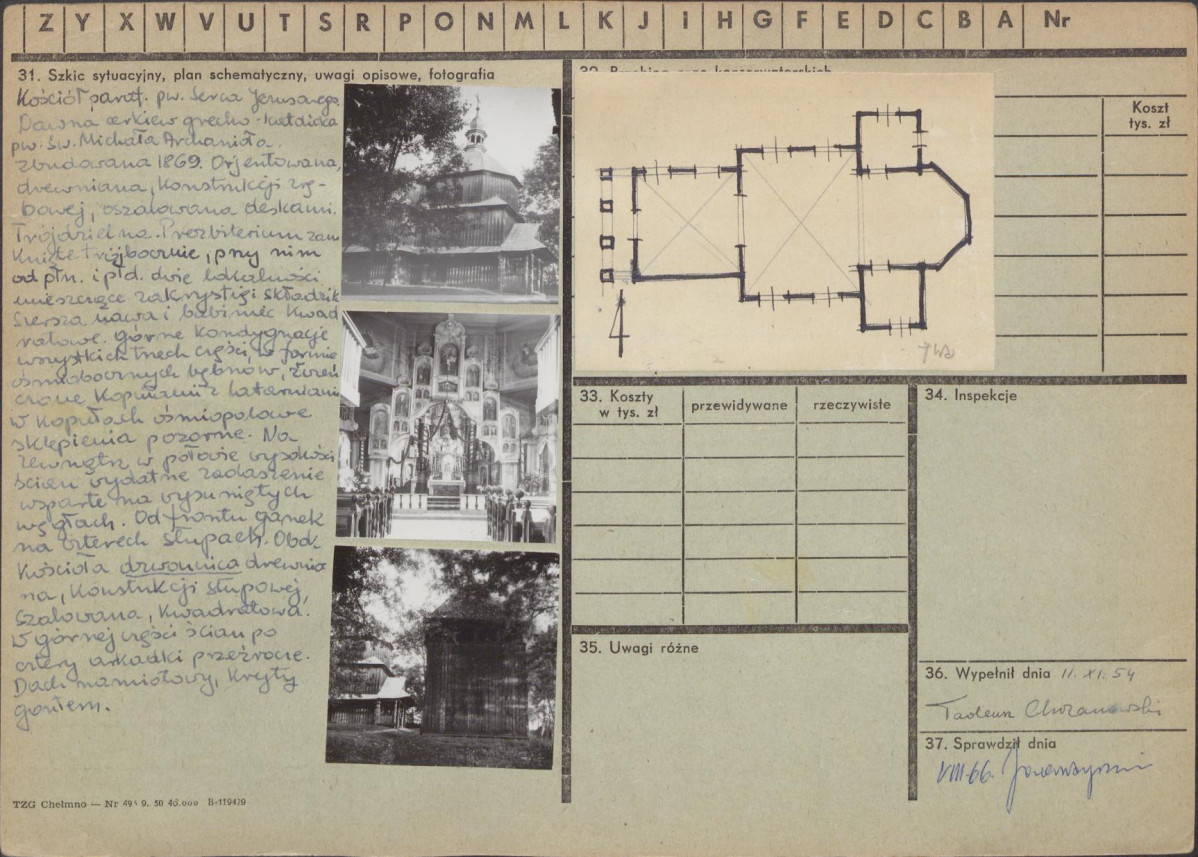 Z Y X W V U T S R P O N M L K J i H G F E D C B A Nr
31. Szkic sytuacyjny, plan schematyczny, uwagi opisowe, fotografia
Kościół paraf. pw. Serca Jezusowego.
Dawna cerkiew grecko-katolicka
pw. św. Michała Archanioła.
Zbudowana 1869. Orjentowana,
drewniana, Konstrukcji zrę-
bowej, oszalowana deskami.
Trójdzielna. Prezbiterium zam
Knięte trójbocznie, przy nim
od płn. i płd. dwie lokalności
mieszczące zakrystię i składzik
Szersza nawa i babiniec Kwad
ratowe. górne Kondygnacje
wszystkich trzech części, w formie
ośmiobocznych bębnów, zwień
czone Kopułami z latarniami
w Kopułach ośmiopolowe
sklepienia pozorne. Na
zewnątrz w połowie wysokości
ścian wydatne zadaszenie
wsparte na wysuniętych
węgłach. Od frontu ganek
na czterech słupach. Obok
Kościoła dzwonnica drewnia
na, Konstrukcji słupowej,
szalowana, Kwadratowa.
W górnej części ścian po
cztery arkadki przeźrocze.
Dach namiotowy, Kryty
gontem.
TZG Chełmno — Nr 49 9. 50 40.000 B-119479
Koszt
tys. zł
33. Koszty
w tys. zł
przewidywane
rzeczywiste
34. Inspekcje
35. Uwagi różne
36. Wypełnił dnia 11. XI. 54
Tadeusz Chrzanowski
37. Sprawdził dnia
VIII 66.